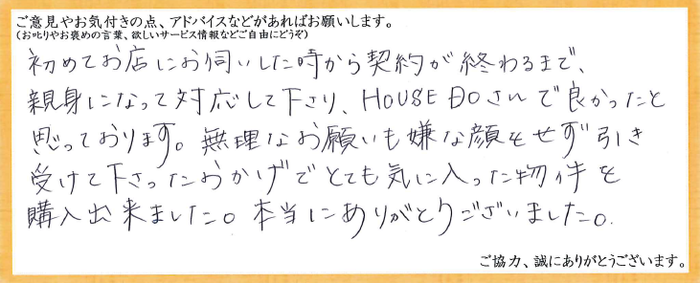 ご意見やお気付きの点、アドバイスなどがあればお願いします。
（お叱りやお褒めの言葉、欲しいサービス情報などご自由にどうぞ）
初めてお店にお伺いした時から契約が終わるまで、
親身になって対応して下さり、HOUSE DOさんで良かったと
思っております。無理なお願いも嫌な顔をせず引き
受けて下さったおかげでとても気に入った物件を
購入出来ました。本当にありがとうございました。
ご協力、誠にありがとうございます。